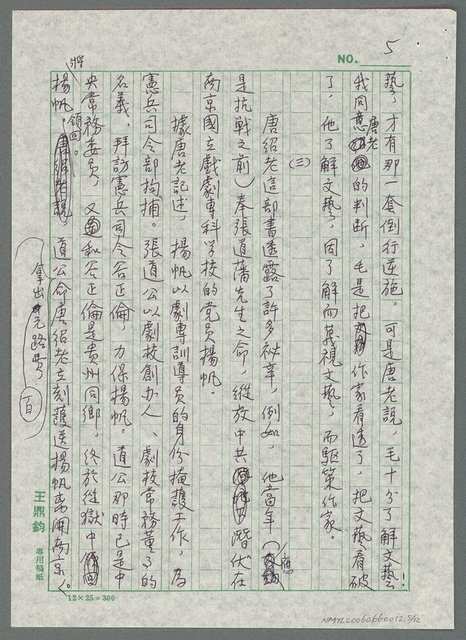 NO. 5
藝，才有那一套倒行逆施，可是唐老說，毛十分了解文藝！
我同意唐老的判斷，毛是把作家看透了，把文藝看破
了，他了解文藝，因了解而蔑視文藝，而驅策作家。
（三）
唐紹老這部書透露了許多祕辛，例如，他當年（應
是抗戰之前）奉張道藩先生之命，縱放中共潛伏在
南京國立戲劇專科學校的黨員揚帆。
據唐老記述，揚帆以劇專訓導員的身份掩護工作，為
憲兵司令部拘捕。張道公以劇校創办人、劇校常務董事的
名義，拜訪憲兵司令谷正倫，力保揚帆。道公那時已是中
央常務委員，又和谷正倫是貴州同鄉，終於從獄中將
揚帆領回。道公命唐紹老立刻護送揚帆离開南京，
拿出路費百元
王鼎鈞 專用稿紙
12×25=300
NMTL20060660012,5/12